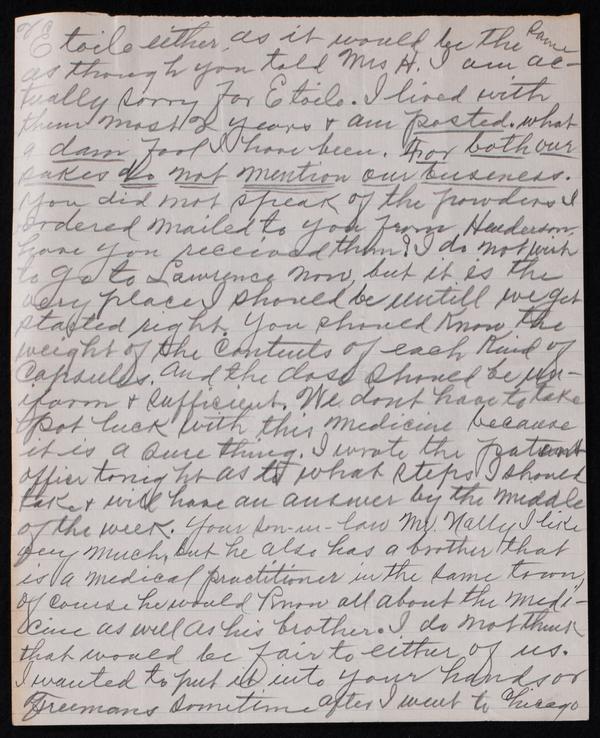 Etoile either, as it would be the same
as though you told Mrs H. I am ac-
tually sorry for Etoile. I lived with
them most 2 years & am posted. what
a dam fool I have been. For both our
sakes do not mention our business.
You did not speak of the powders I
ordered mailed to you from Henderson,
have you received them? I do not wish
to go to Lawrence now, but it is the
very place I should be untill we get
started right. You should know the
weight of the contents of each kind of
capsules. and the dose should be un-
iform & sufficient. We dont have to take
pot luck with this medicine because
it is a sure thing. I wrote the patent
office tonight as to what steps I should
take & will have an answer by the middle
of the week. Your son-in-law Mr. Nally I like
very much, but he also has a brother that
is a medical practitioner in the same town,
of course he would know all about the medi-
cine as well as his brother. I do not think
that would be fair to either of us.
I wanted to put it into your hands or
Freemans sometime after I went to Chicago